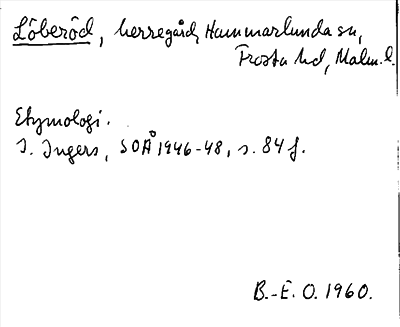 Löberöd, herregård, Hammarlunda sn,
Frosta hd, Malm. l.
Etymologi.
I. Ingers, SOÅ 1946-48, s. 84 f.
B.-E. O. 1960.